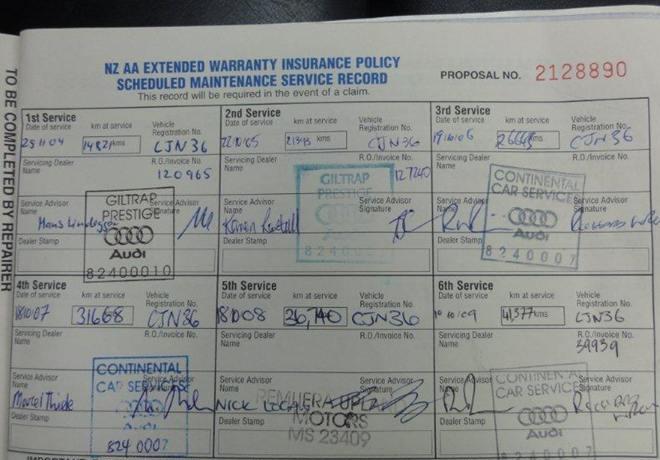 NZ AA EXTENDED WARRANTY INSURANCE POLICY
SCHEDULED MAINTENANCE SERVICE RECORD
This record will be required in the event of a claim.
PROPOSAL NO. 2128890
TO BE COMPLETED BY REPAIRER
1st Service
Date of service km at service Vehicle Registration No.
29 11 04 kms CJN36
Servicing Dealer Name R.O./Invoice No.
120965
Service Advisor Name Service Advisor Signature
Hans
GILTRAP
PRESTIGE
Audi
82400010
Dealer Stamp
2nd Service
Date of service km at service Vehicle Registration No.
kms CJN36
Servicing Dealer Name R.O./Invoice No.
127240
Service Advisor Name Service Advisor Signature
Karen
GILTRAP
PRESTIGE
Dealer Stamp
3rd Service
Date of service km at service Vehicle Registration No.
19 10 06 kms CJN36
Servicing Dealer Name R.O./Invoice No.
Service Advisor Name Service Advisor Signature
CONTINENTAL
CAR SERVICES
Audi
8240007
Dealer Stamp
4th Service
Date of service km at service Vehicle Registration No.
18/10/07 31668 CJN36
Servicing Dealer Name R.O./Invoice No.
Service Advisor Name Service Advisor Signature
Marcel
CONTINENTAL
CAR SERVICES
Audi
8240007
Dealer Stamp
5th Service
Date of service km at service Vehicle Registration No.
36,740 CJN36
Servicing Dealer Name R.O./Invoice No.
Service Advisor Name Service Advisor Signature
NICK
REMUERA
MOTORS
MS 23409
Dealer Stamp
6th Service
Date of service km at service Vehicle Registration No.
10/10/09 41377 kms CJN36
Servicing Dealer Name R.O./Invoice No.
39939
Service Advisor Name Service Advisor Signature
CONTINENTAL
CAR SERVICES
Audi
8240007
Dealer Stamp